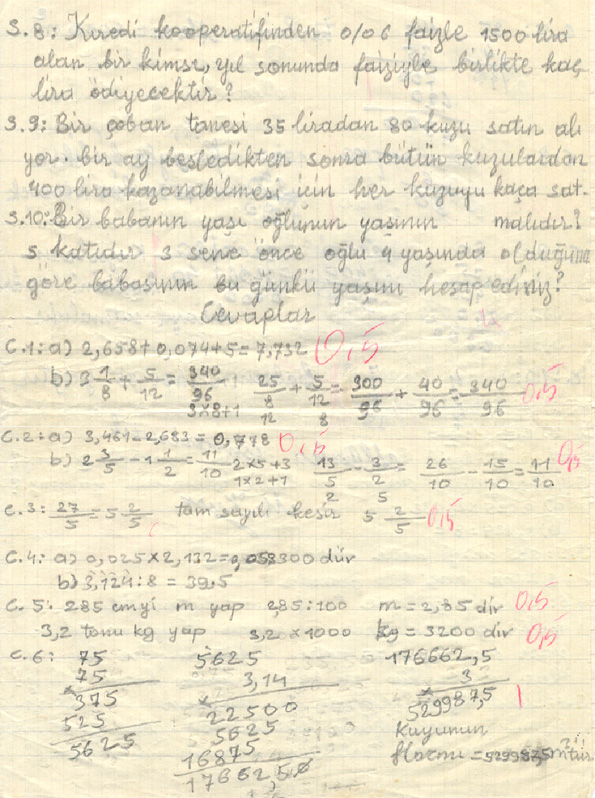 S.8: Kıredi kooperatifinden 0/06 faizle 1500 lira
alan bir kimse, yıl sonunda faiziyle birlikte kaç
lira ödiyecektir?
S.9: Bir çoban tanesi 35 liradan 80 kuzu satın alı
yor. bir ay besledikten sonra bütün kuzulardan
400 lira kazanabilmesi için her kuzuyu kaça sat-
malıdır?
S.10: Bir babanın yaşı oğlunun yaşının
5 katıdır 3 sene önce oğlu 4 yaşında olduğuna
göre babasının bu günkü yaşını hesap ediniz?
Cevaplar
C.1: a) 2,658+0,074+5=7,732 0,5
b) 3 1/8 + 5/12 = 340/96 25/8 + 5/12 = 300/96 + 40/96 = 340/96 0,5
3x8+1 12 8
C.2: a) 3,461-2,683=0,778 0,5
b) 2 3/5 - 1 1/2 = 11/10 2x5+3 13/5 - 3/2 = 26/10 - 15/10 = 11/10 0,5
1x2+1 2 5
C.3: 27/5 = 5 2/5 tam sayılı kesir 5 2/5 0,5
C.4: a) 0,025x2,132=0,058300 dür
b) 3,124:8 = 39,5
C.5: 285 cmyi m yap 2,85:100 m=2,85 dir 0,5
3,2 tonu kg yap 3,20x1000 kg=3200 dir 0,5
C.6: 75 5625 176662,5
75 3,14 3
x x x
375 22500 529987,5 1
525 5625 Kuyunun
5625 16875 Hacmi = m³ tür
17662,50